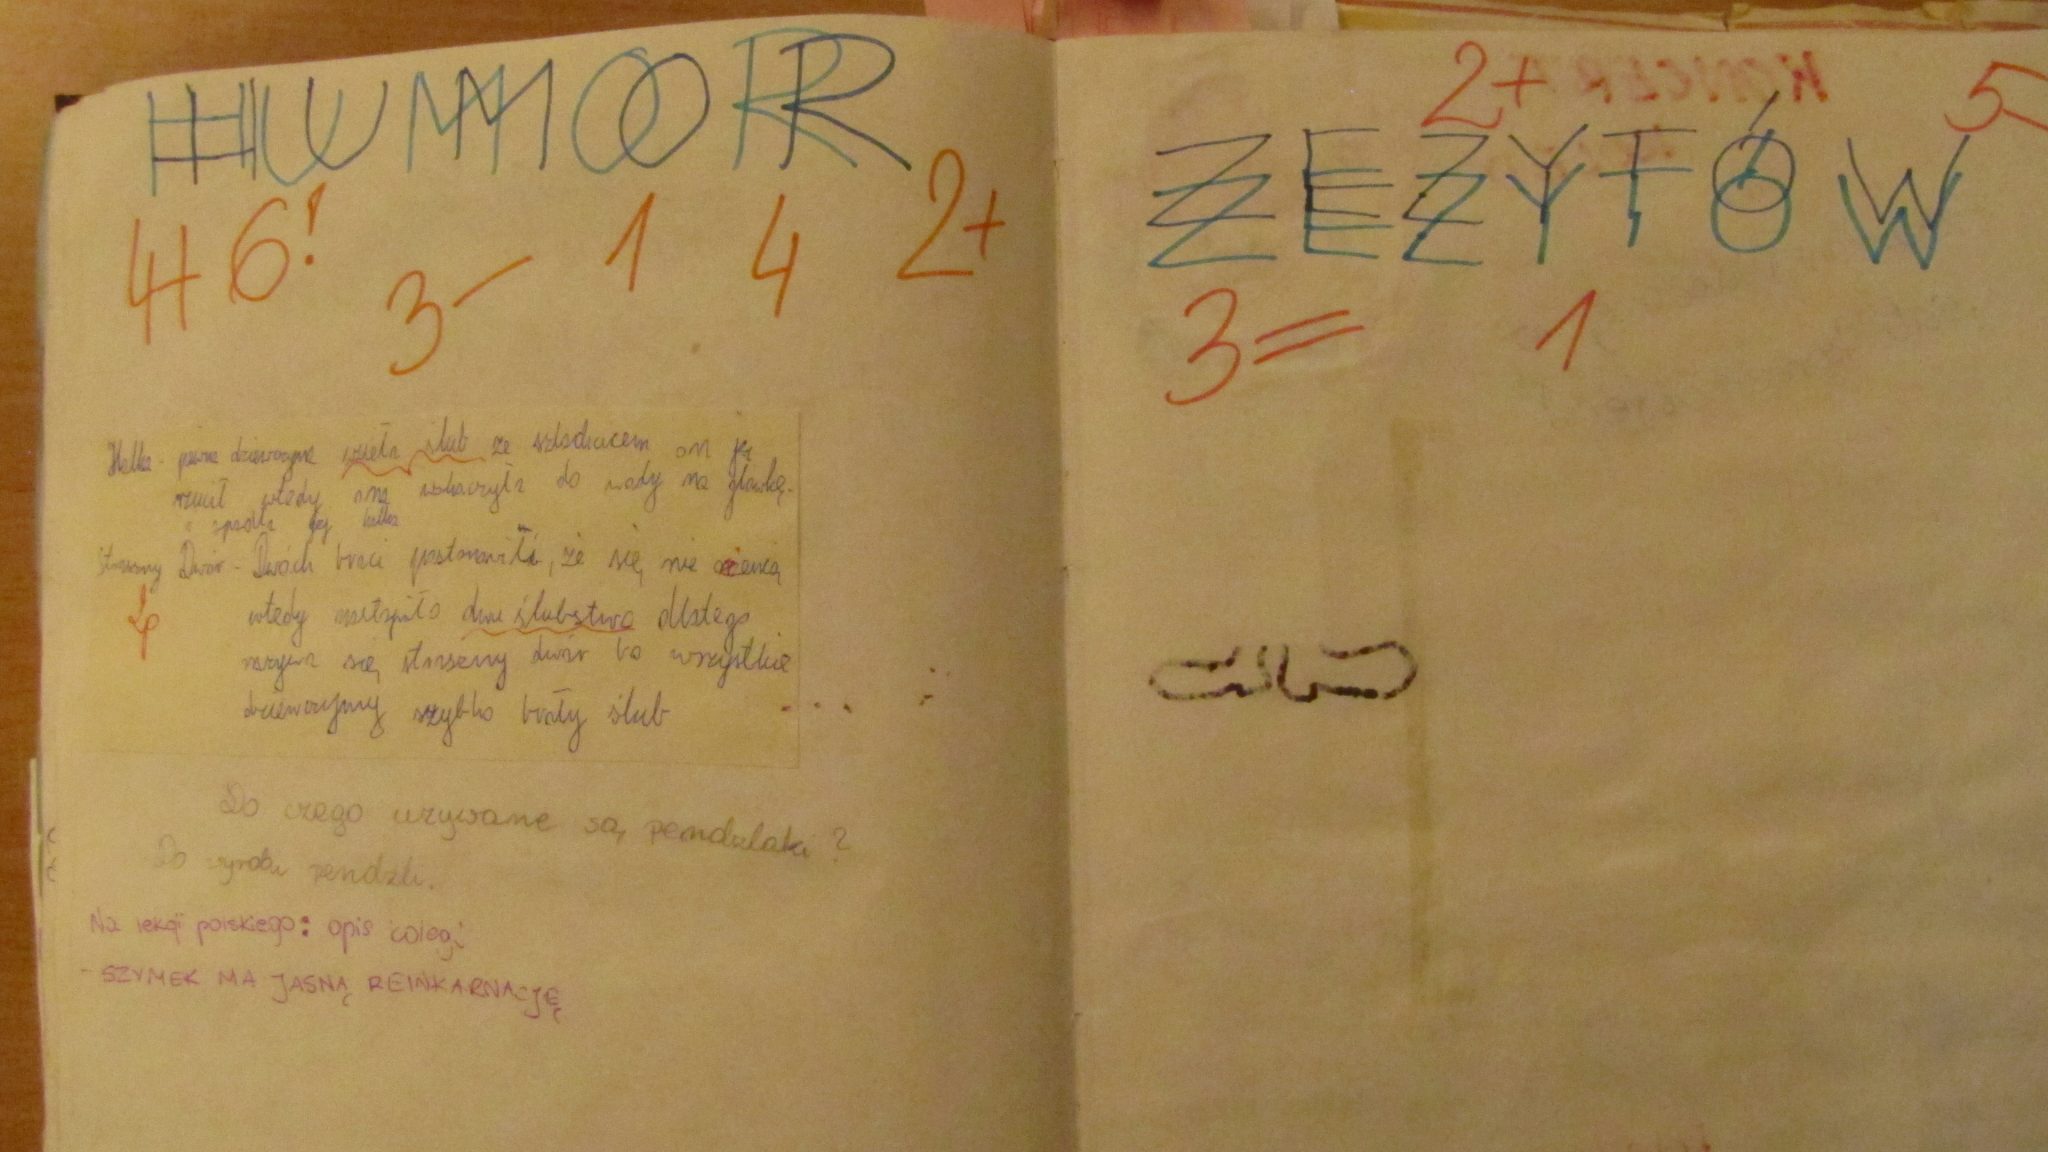 HUMOR
4H 6! 3- 1 4 2+
Halka - pewna dziewczyna wzieła ślub ze szlachcicem on ją
rzucił wtedy ona wskoczyła do wody na główkę.
i spadła jej halka
straszny Dwór - Dwóch braci postanowiło, że się nie ożenią
wtedy nastąpiło dwu ślubstwo dlatego
nazywa się straszny dwór bo wszystkie
dziewczyny szybko brały ślub
Do czego używane są pendzlaki?
Do wyrobu pendzli.
Na lekcji polskiego: opis kolegi
- SZYMEK MA JASNĄ REINKARNACJĘ
2+ 5-
ZEZYTÓW
3= 1